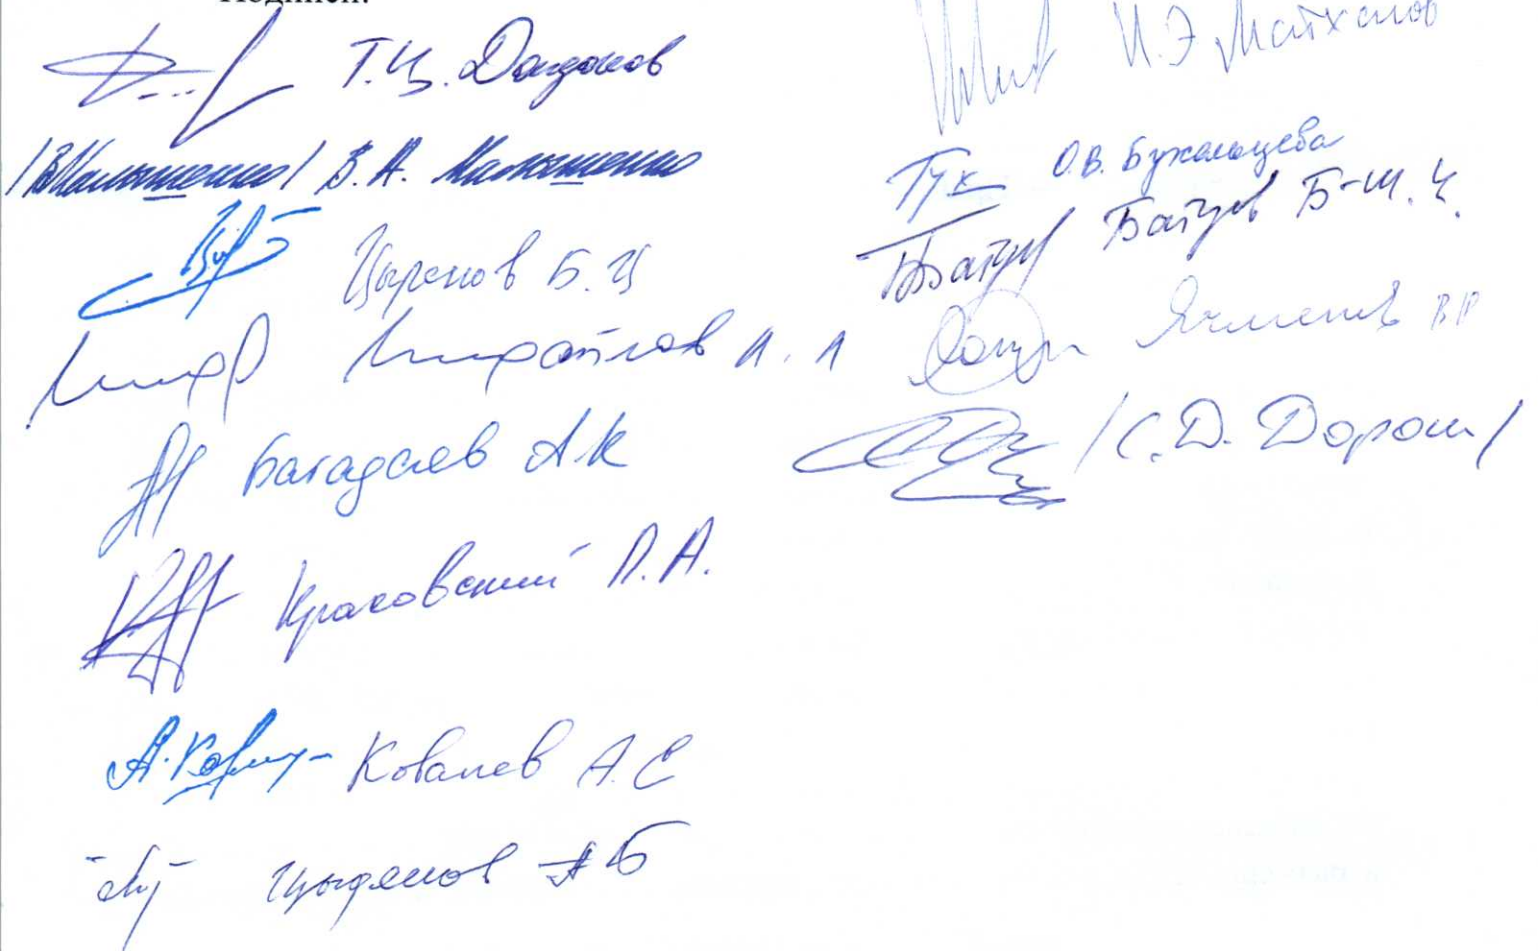 Подписи:
Т.Ц. Дондоков
/В Малышенко/ В. А. Малышенко
Цыренов Б. Ц
Михайлов А. А
Багадаев А К
Красовский П. А.
А. Ковал Ковалев А. С
Цыденов А Б
И. Э Матханов
О.В. Бухольцева
Батуев Батуев Б-Ш. Ц.
Ячменев
/С. Д. Дорош/